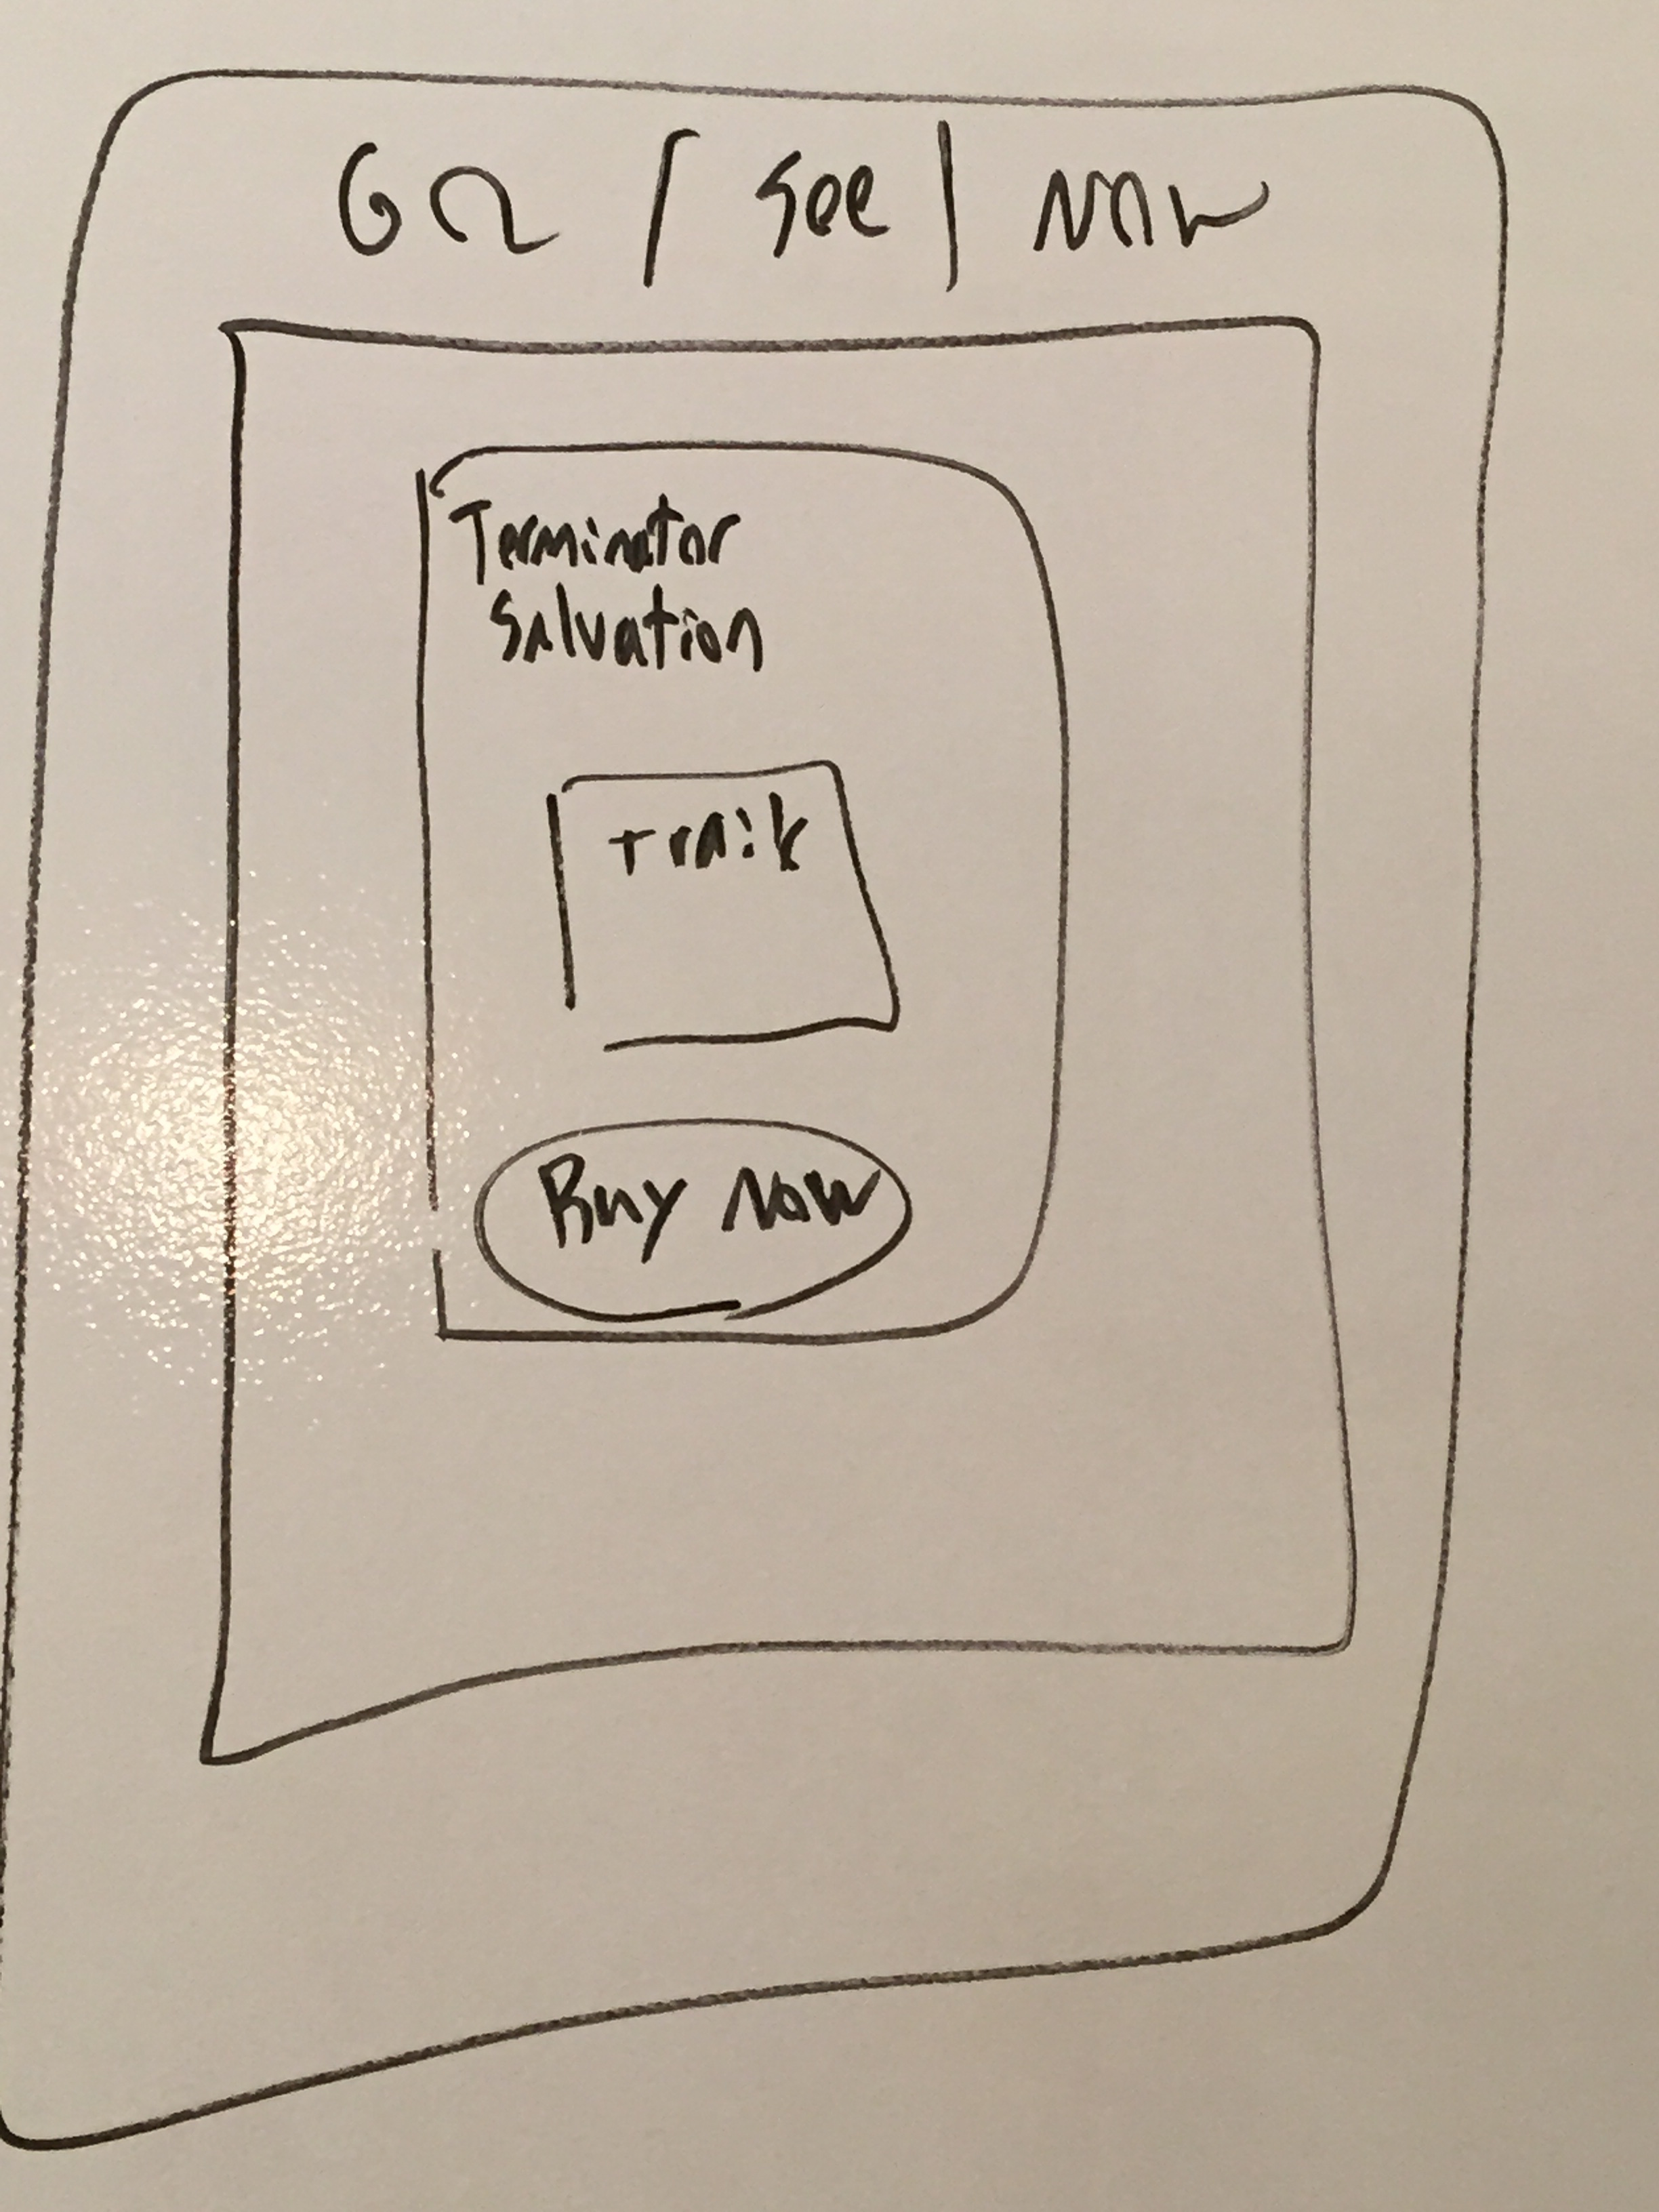 Go / See | Now
Terminator
Salvation
Buy Now